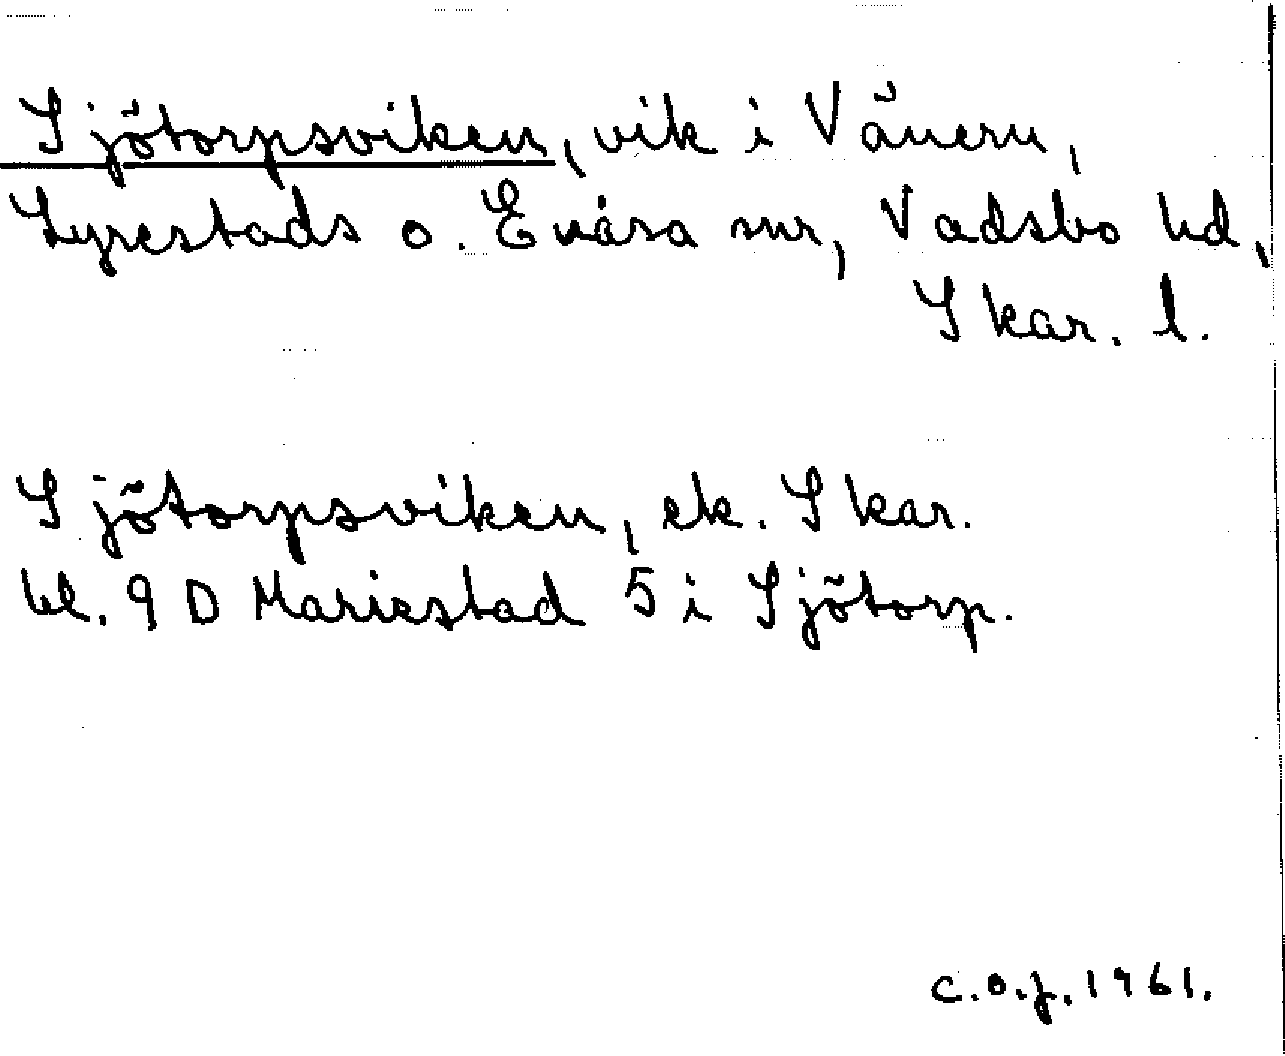 Sjötorpsviken, vik i Vänern,
Lyrestads o. Enåsa snr, Vadsbo hd,
Skar. l.
Sjötorpsviken, ek. Skar.
bl. 9 D Mariestad 5 i Sjötorp.
C.O.J. 1961.